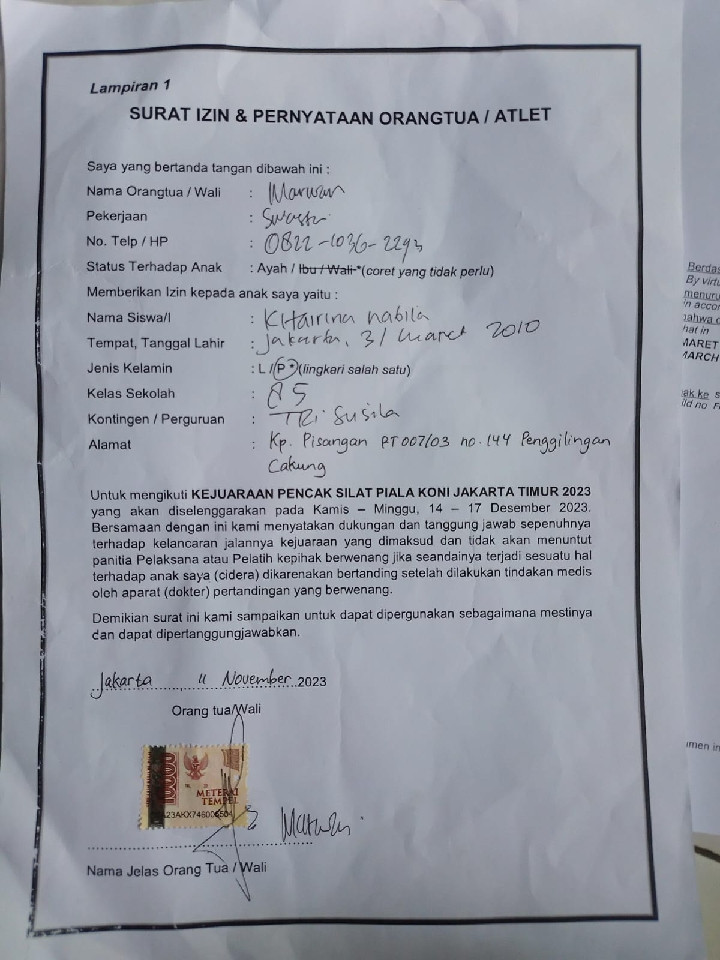 Lampiran 1
SURAT IZIN & PERNYATAAN ORANGTUA / ATLET
Saya yang bertanda tangan dibawah ini :
Nama Orangtua / Wali : Marwan
Pekerjaan : Swasta
No. Telp / HP : 0822-1036-2293
Status Terhadap Anak : Ayah / Ibu / Wali *(coret yang tidak perlu)
Memberikan Izin kepada anak saya yaitu :
Nama Siswa/I : KHairina nabila
Tempat, Tanggal Lahir : Jakarta, 31 maret 2010
Jenis Kelamin : L / P *(lingkari salah satu)
Kelas Sekolah :
Kontingen / Perguruan : TRI Susila
Alamat : Kp. Pisangan RT 007/03 no. 144 Penggilingan
Cakung
Untuk mengikuti KEJUARAAN PENCAK SILAT PIALA KONI JAKARTA TIMUR 2023
yang akan diselenggarakan pada Kamis – Minggu, 14 – 17 Desember 2023.
Bersamaan dengan ini kami menyatakan dukungan dan tanggung jawab sepenuhnya
terhadap kelancaran jalannya kejuaraan yang dimaksud dan tidak akan menuntut
panitia Pelaksana atau Pelatih kepihak berwenang jika seandainya terjadi sesuatu hal
terhadap anak saya (cidera) dikarenakan bertanding setelah dilakukan tindakan medis
oleh aparat (dokter) pertandingan yang berwenang.
Demikian surat ini kami sampaikan untuk dapat dipergunakan sebagaimana mestinya
dan dapat dipertanggungjawabkan.
Jakarta, 11 November 2023
Orang tua/Wali
10000
METERAI
TEMPEL
Marwan
Nama Jelas Orang Tua / Wali
Berdas
By virtu
menuru
in accor
bahwa d
hat in
MARET
MARCH